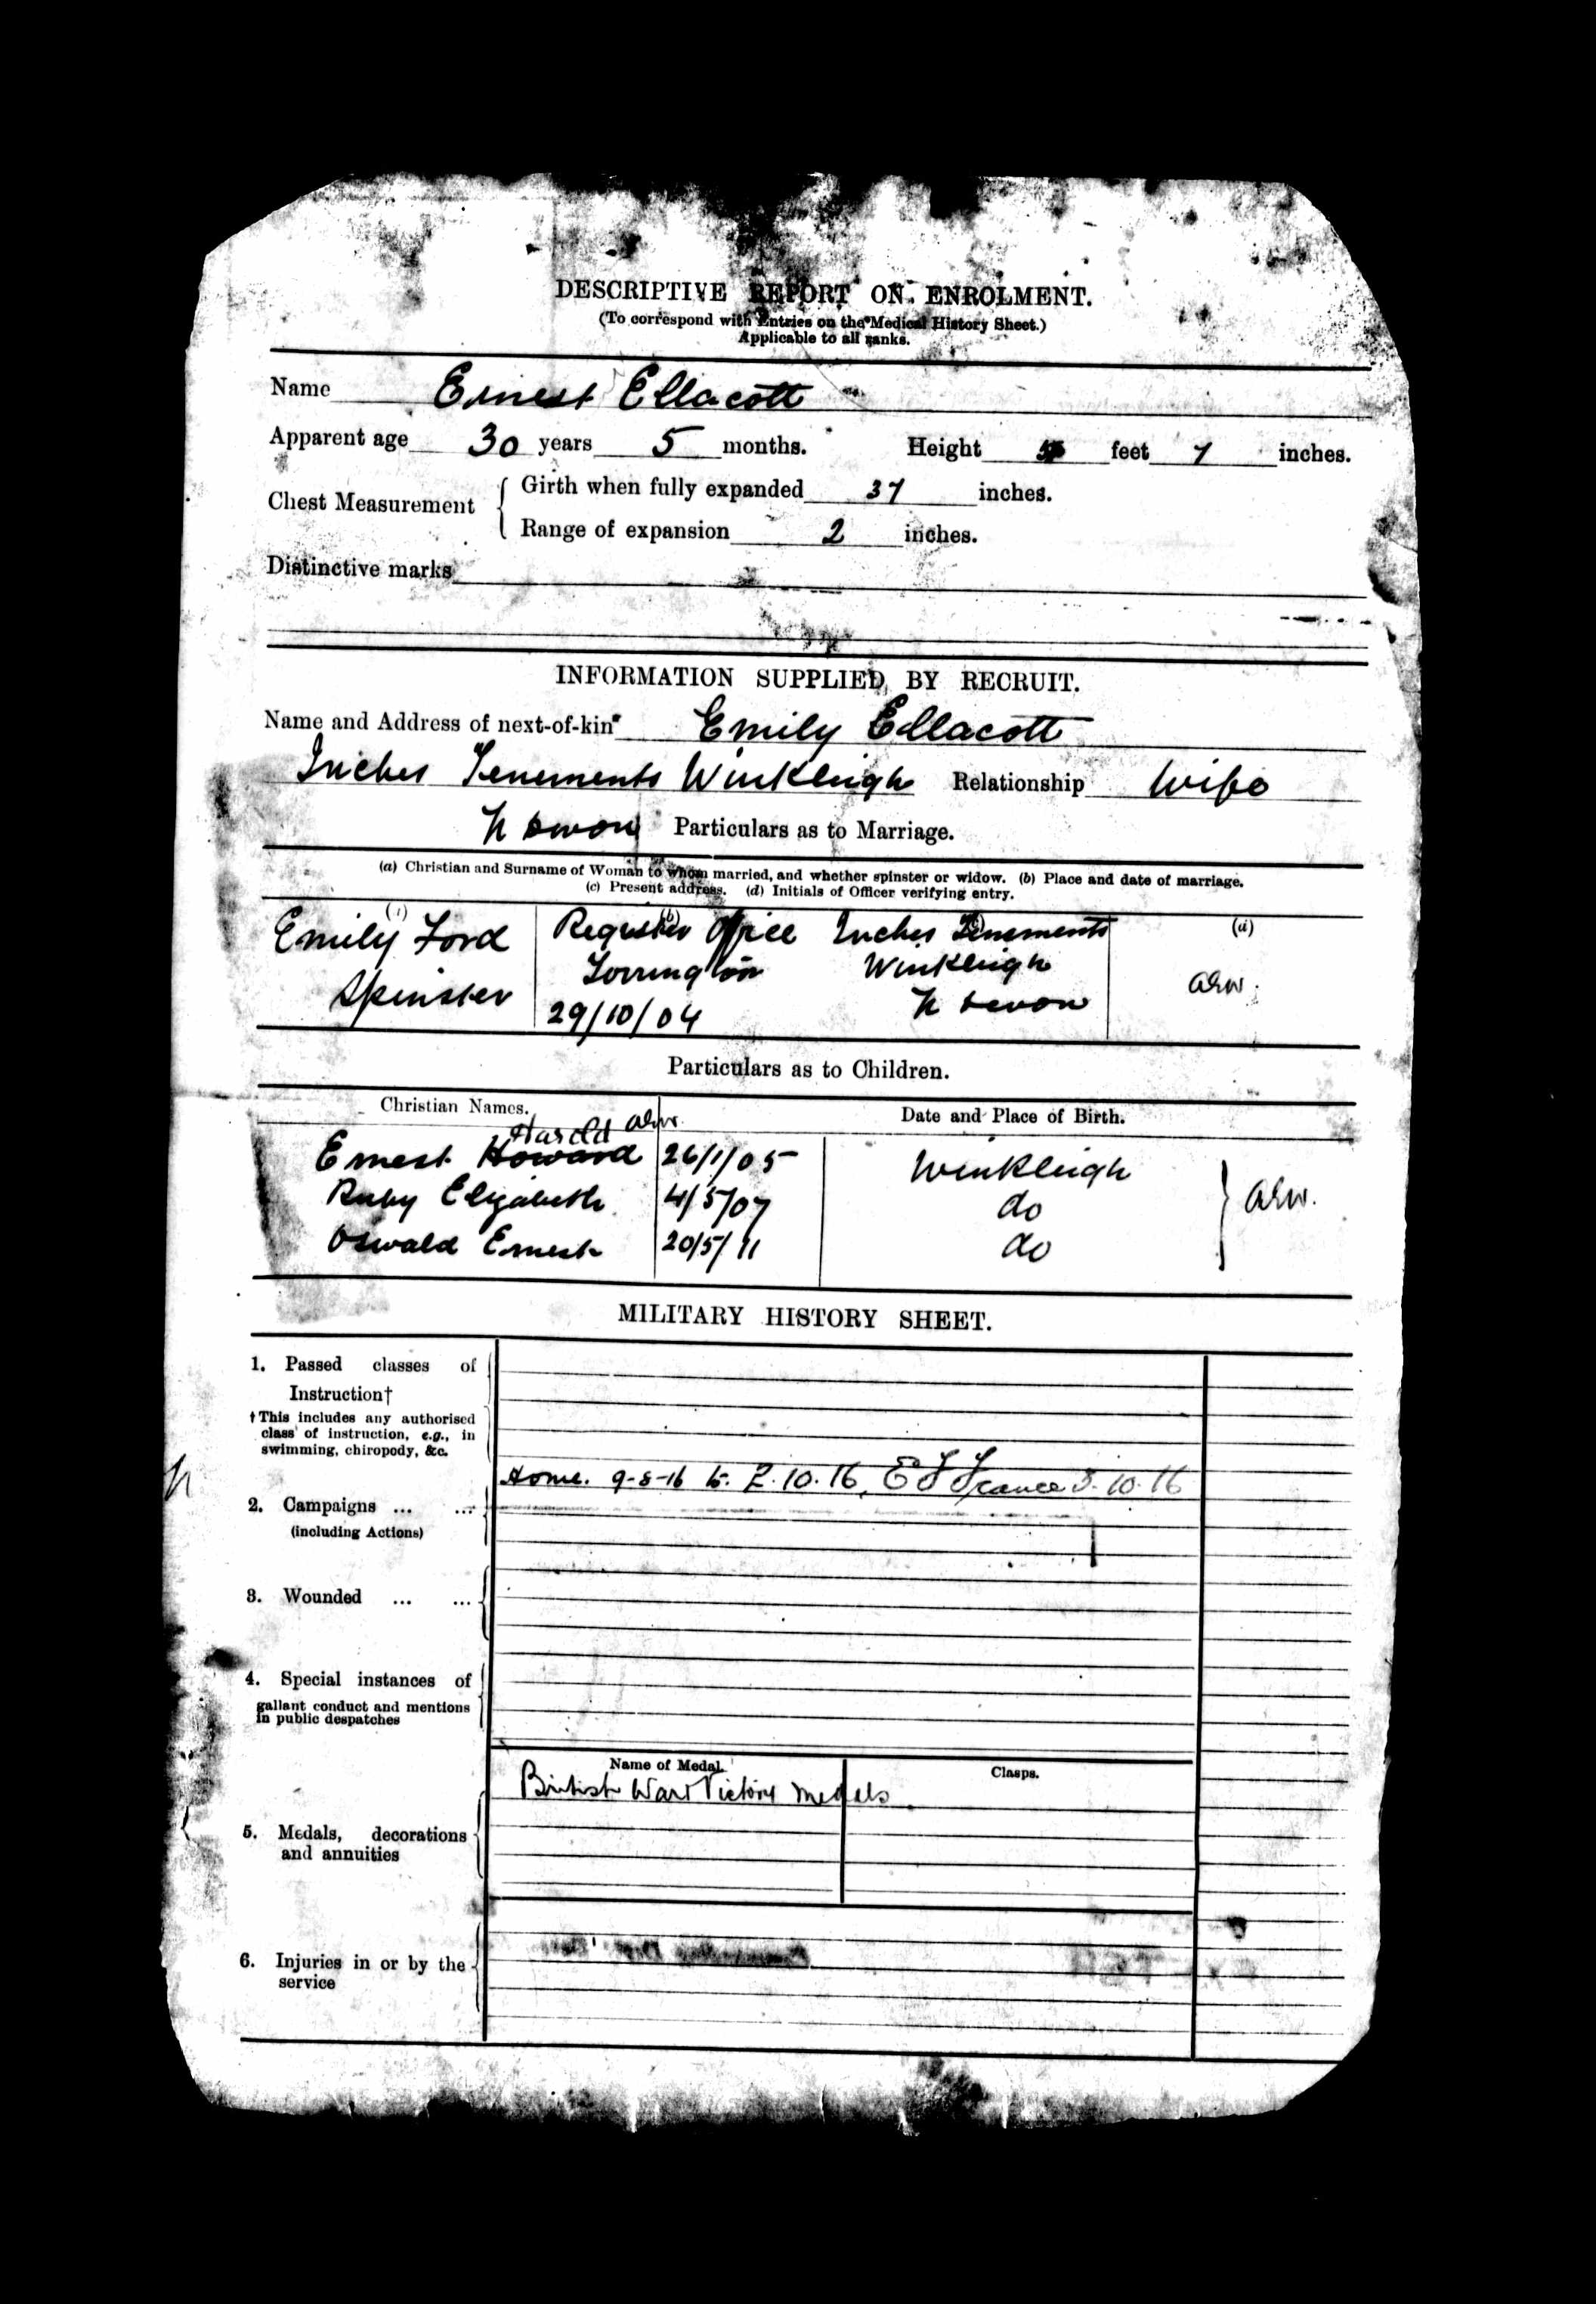 DESCRIPTIVE REPORT ON ENROLMENT.
(To correspond with Entries on the Medical History Sheet.)
Applicable to all ranks.
Name Ernest Ellacott
Apparent age 30 years 5 months. Height 5 feet 7 inches.
Chest Measurement { Girth when fully expanded 37 inches.
Range of expansion 2 inches.
Distinctive marks
INFORMATION SUPPLIED BY RECRUIT.
Name and Address of next-of-kin Emily Ellacott
Inches Tenements Winkleigh Relationship Wife
N Devon Particulars as to Marriage.
(a) Christian and Surname of Woman to whom married, and whether spinster or widow. (b) Place and date of marriage.
(c) Present address. (d) Initials of Officer verifying entry.
(b) (d)
Emily Ford Register Office Inches Tenements
Spinster Torrington Winkleigh
29/10/04 N Devon
Particulars as to Children.
Christian Names. Date and Place of Birth.
Harold
Ernest Howard 26/1/05 Winkleigh
Ruby Elizabeth 4/5/07 do
Oswald Ernest 20/5/11 do
MILITARY HISTORY SHEET.
1. Passed classes of
Instruction†
† This includes any authorised
class of instruction, e.g., in
swimming, chiropody, &c.
Home. 9-8-16 to 2.10.16, E F France 3.10.16
2. Campaigns ... ...
(including Actions)
3. Wounded ... ...
4. Special instances of
gallant conduct and mentions
in public despatches
Name of Medal. Clasps.
British War & Victory Medals
5. Medals, decorations
and annuities
6. Injuries in or by the
service